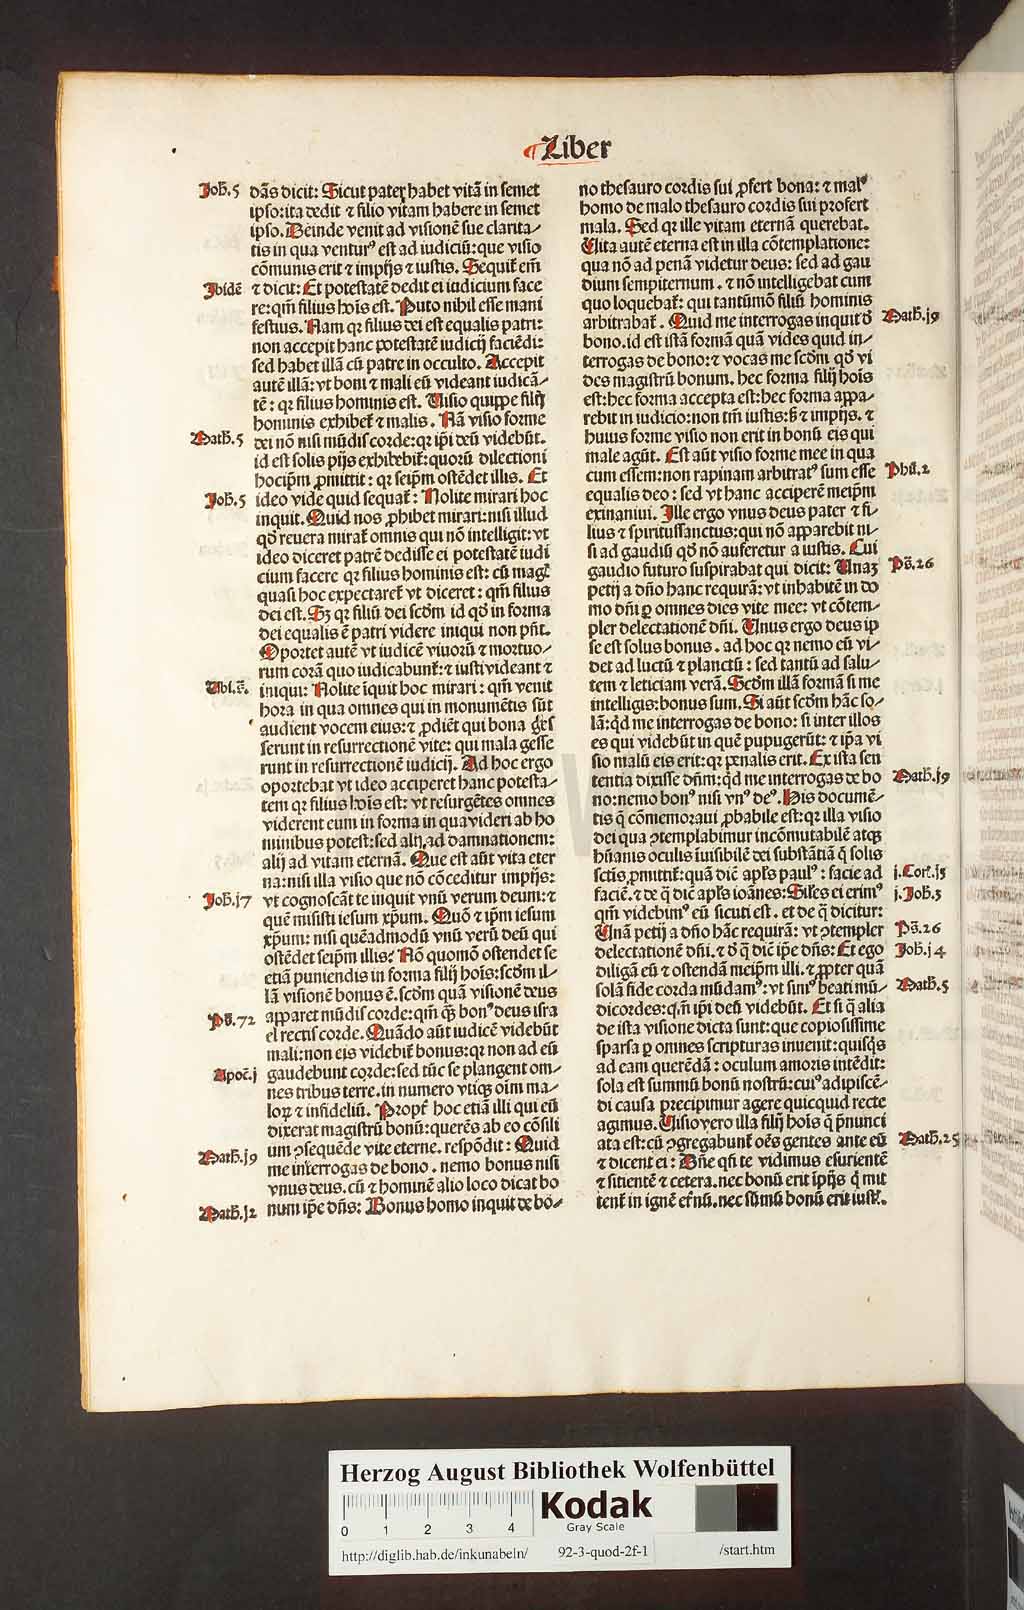 ¶Liber
Joh̄.5
dās dicit: Sicut pater habet vitā in semet
ipso: ita dedit ⁊ filio vitam habere in semet
ipso. Deinde venit ad visionē sue clarita⸗
tis in qua venturꝰ est ad iudiciū: que visio
cōmunis erit ⁊ impijs ⁊ iustis. Sequit̄ em̄
Ibidē
⁊ dicit: Et potestatē dedit ei iudicium face
re: qm̄ filius hoīs est. Puto nihil esse mani
festius. Nam qꝛ filius dei est equalis patri:
non accepit hanc potestatē iudicij faciēdi:
sed habet illā cū patre in occulto. Accepit
autē illā: vt boni ⁊ mali eū videant iudicā⸗
tē: qꝛ filius hominis est. Uisio quippe filij
hominis exhibet̄ ⁊ malis. Nā visio forme
Math̄.5
dei nō nisi mūdis corde: qꝛ ip̄i deū videbūt.
id est solis pijs exhibebit̄: quorū dilectioni
hocip̄m ꝓmittit: qꝛ seip̄m ostēdet illis. Et
Joh̄.5
ideo vide quid sequat̄: Nolite mirari hoc
inquit. Quid nos ꝓhibet mirari: nisi illud
qd̄ reuera mirat̄ omnis qui nō intelligit: vt
ideo diceret patrē dedisse ei potestatē iudi
cium facere qꝛ filius hominis est: cū maḡ
quasi hoc expectaret̄ vt diceret: qm̄ filius
dei est. Sꝫ qꝛ filiū dei scdm̄ id qd̄ in forma
dei equalis ē patri videre iniqui non pn̄t.
Oportet autē vt iudicē viuorū ⁊ mortuo⸗
rum corā quo iudicabunt̄: ⁊ iusti videant ⁊
Ubi.s̄.
iniqui: Nolite iquit hoc mirari: qm̄ venit
hora in qua omnes qui in monumētis sūt
audient vocem eius: ⁊ ꝓdiēt qui bona ges
serunt in resurrectionē vite: qui mala gesse
runt in resurrectionē iudicij. Ad hoc ergo
oportebat vt ideo acciperet hanc potesta⸗
tem qꝛ filius hoīs est: vt resurgētes omnes
viderent eum in forma in qua videri ab ho
minibus potest: sed alij ad damnationem:
alij ad vitam eternā. Que est aūt vita eter
na: nisi illa visio que nō cōceditur impijs:
Joh̄.j7
vt cognoscāt te inquit vnū verum deum: ⁊
quē misisti iesum xp̄um. Quō ⁊ ip̄m iesum
xp̄um: nisi quēadmodū vnū verū deū qui
ostēdet seip̄m illis? Nō quomō ostendet se
etiā puniendis in forma filij hoīs: scdm̄ il⸗
lā visionē bonus ē. scdm̄ quā visionē deus
Ps̄.72
apparet mūdis corde: qm̄ q̄ꝫ bonꝰ deus isra
el rectis corde. Quādo aūt iudicē videbūt
mali: non eis videbit̄ bonus: qꝛ non ad eū
Apoc̄.j
gaudebunt corde: sed tūc se plangent om⸗
nes tribus terre. in numero vtiqꝫ oīm ma⸗
loꝝ ⁊ infideliū. Propt̄ hoc etiā illi qui eū
dixerat magistrū bonū: querēs ab eo cōsili
um ↄsequēde vite eterne. respōdit: Quid
Math̄.j9
me interrogas de bono. nemo bonus nisi
vnus deus. cū ⁊ hominē alio loco dicat bo
Math̄.j2
num ip̄e dn̄s: Bonus homo inquit de bo⸗
no thesauro cordis sui ꝓfert bona: ⁊ malꝰ
homo de malo thesauro cordis sui profert
mala. Sed qꝛ ille vitam eternā querebat.
Uita autē eterna est in illa cōtemplatione:
qua nō ad penā videtur deus: sed ad gau
dium sempiternum. ⁊ nō intelligebat cum
quo loquebat̄: qui tantūmō filiū hominis
arbitrabat̄. Quid me interrogas inquit d̄
Math̄.j9
bono. id est istā formā quā vides quid in⸗
terrogas de bono: ⁊ vocas me scdm̄ qd̄ vi
des magistrū bonum. hec forma filij hoīs
est: hec forma accepta est: hec forma appa⸗
rebit in iudicio: non tm̄ iustis: ß ⁊ impijs. ⁊
huius forme visio non erit in bonū eis qui
male agūt. Est aūt visio forme mee in qua
cum essem: non rapinam arbitratꝰ sum esse
Phil̄.2
equalis deo: sed vt hanc acciperē meip̄m
exinaniui. Ille ergo vnus deus pater ⁊ fi⸗
lius ⁊ spiritussanctus: qui nō apparebit ni⸗
si ad gaudiū qd̄ nō auferetur a iustis. Cui
gaudio futuro suspirabat qui dicit: Unaꝫ
Ps̄.26
petij a dn̄o hanc requirā: vt inhabitē in do
mo dn̄i ꝑ omnes dies vite mee: vt cōtem⸗
pler delectationē dn̄i. Unus ergo deus ip
se est solus bonus. ad hoc qꝛ nemo eū vi⸗
det ad luctū ⁊ planctū: sed tantū ad salu⸗
tem ⁊ leticiam verā. Scdm̄ illā formā si me
intelligis: bonus sum. Si aūt scdm̄ hāc so⸗
lā: qd̄ me interrogas de bono: si inter illos
es qui videbūt in quē pupugerūt: ⁊ ip̄a vi
sio malū eis erit: qꝛ penalis erit. Ex ista sen
tentia dixisse dn̄m: qd̄ me interrogas de bo
Math̄.j9
no: nemo bonꝰ nisi vnꝰ deꝰ. His documē⸗
tis q̄ cōmemoraui ꝓbabile est: qꝛ illa visio
dei qua ↄtemplabimur incōmutabilē atqꝫ
hūanis oculis īuisibilē dei substātiā q̄ solis
sctīs ꝓmittit̄: quā dic̄ apl̄s paulꝰ: facie ad
j.Cort̄.j3
faciē. ⁊ de q̄ dic̄ apl̄s ioānes: Sil̄es ei erimꝰ
j.Joh̄.3
qm̄ videbimꝰ eū sicuti est. et de q̄ dicitur:
Unā petij a dn̄o hāc requirā: vt ↄtempler
Ps̄.26
delectationē dn̄i. ⁊ d̄ q̄ dic̄ ip̄e dn̄s: Et ego
Joh̄.j4
diligā eū ⁊ ostendā meip̄m illi. ⁊ ꝓpter quā
solā fide corda mūdamꝰ: vt simꝰ beati mū⸗
Math̄.5
dicordes: qm̄ ip̄i deū videbūt. Et si q̄ alia
de ista visione dicta sunt: que copiosissime
sparsa ꝑ omnes scripturas inuenit: quisq̄s
ad eam querēdā: oculum amoris intēdit:
sola est summū bonū nostrū: cuiꝰ adipiscē⸗
di causa precipimur agere quicquid recte
agimus. Uisio vero illa filij hoīs q̄ p̄nunci
ata est: cū ↄgregabunt̄ oēs gentes ante eū
Math̄.25
⁊ dicent ei: Dn̄e qn̄ te vidimus esurientē
⁊ sitientē ⁊ cetera. nec bonū erit īpijs q̄ mit
tent̄ in ignē et̄nū. nec sūmū bonū erit iust̄.
Herzog August Bibliothek Wolfenbüttel
0 1 2 3 4
Kodak
Gray Scale
http://diglib.hab.de/inkunabeln/ 92-3-quod-2f-1 /start.htm